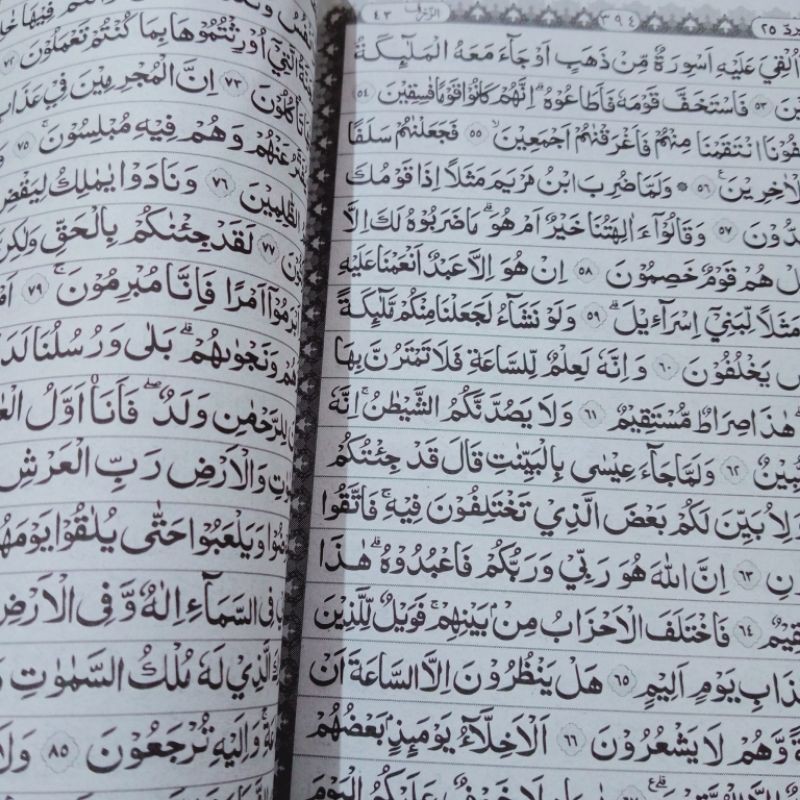 ٤٣ الزخرف ٣٩٤ ٢٥
اُلْقِيَ عَلَيْهِ اَسْوِرَةٌ مِّنْ ذَهَبٍ اَوْ جَآءَ مَعَهُ الْمَلٰٓئِكَةُ
٥٣ فَاسْتَخَفَّ قَوْمَهٗ فَاَطَاعُوْهُ ؕ اِنَّهُمْ كَانُوْا قَوْمًا فٰسِقِيْنَ ٥٤
انْتَقَمْنَا مِنْهُمْ فَاَغْرَقْنٰهُمْ اَجْمَعِيْنَ ۙ ٥٥ فَجَعَلْنٰهُمْ سَلَفًا
لِّلْاٰخِرِيْنَ ٥٦ وَلَمَّا ضُرِبَ ابْنُ مَرْيَمَ مَثَلًا اِذَا قَوْمُكَ
٥٧ وَقَالُوْٓا ءَاٰلِهَتُنَا خَيْرٌ اَمْ هُوَ ؕ مَا ضَرَبُوْهُ لَكَ اِلَّا
هُمْ قَوْمٌ خَصِمُوْنَ ٥٨ اِنْ هُوَ اِلَّا عَبْدٌ اَنْعَمْنَا عَلَيْهِ
مَثَلًا لِّبَنِيْٓ اِسْرَآءِيْلَ ؕ ٥٩ وَلَوْ نَشَآءُ لَجَعَلْنَا مِنْكُمْ مَّلٰٓئِكَةً
يَخْلُفُوْنَ ٦٠ وَاِنَّهٗ لَعِلْمٌ لِّلسَّاعَةِ فَلَا تَمْتَرُنَّ بِهَا
هٰذَا صِرَاطٌ مُّسْتَقِيْمٌ ٦١ وَلَا يَصُدَّنَّكُمُ الشَّيْطٰنُ ۚ اِنَّهٗ
٦٢ وَلَمَّا جَآءَ عِيْسٰى بِالْبَيِّنٰتِ قَالَ قَدْ جِئْتُكُمْ
وَلِاُبَيِّنَ لَكُمْ بَعْضَ الَّذِيْ تَخْتَلِفُوْنَ فِيْهِ ۚ فَاتَّقُوا
٦٣ اِنَّ اللّٰهَ هُوَ رَبِّيْ وَرَبُّكُمْ فَاعْبُدُوْهُ ؕ هٰذَا
٦٤ فَاخْتَلَفَ الْاَحْزَابُ مِنْۢ بَيْنِهِمْ ۚ فَوَيْلٌ لِّلَّذِيْنَ
يَوْمٍ اَلِيْمٍ ٦٥ هَلْ يَنْظُرُوْنَ اِلَّا السَّاعَةَ اَنْ
وَّهُمْ لَا يَشْعُرُوْنَ ٦٦ اَلْاَخِلَّاۤءُ يَوْمَىِٕذٍۢ بَعْضُهُمْ
لَا خَوْفٌ عَلَيْكُمُ الْيَوْمَ
الَّتِيْٓ اُوْرِثْتُمُوْهَا بِمَا كُنْتُمْ تَعْمَلُوْنَ ٧٢
تَأْكُلُوْنَ ٧٣ اِنَّ الْمُجْرِمِيْنَ فِيْ عَذَابِ
عَنْهُمْ وَهُمْ فِيْهِ مُبْلِسُوْنَ ۚ ٧٥
الظّٰلِمِيْنَ ٧٦ وَنَادَوْا يٰمٰلِكُ لِيَقْضِ
٧٧ لَقَدْ جِئْنٰكُمْ بِالْحَقِّ وَلٰكِنَّ
اَبْرَمُوْٓا اَمْرًا فَاِنَّا مُبْرِمُوْنَ ۚ ٧٩
وَنَجْوٰىهُمْ ؕ بَلٰى وَرُسُلُنَا
لِلرَّحْمٰنِ وَلَدٌ ۖ فَاَنَا۠ اَوَّلُ
وَالْاَرْضِ رَبِّ الْعَرْشِ
وَيَلْعَبُوْا حَتّٰى يُلٰقُوْا يَوْمَهُمُ
فِى السَّمَآءِ اِلٰهٌ وَّفِى الْاَرْضِ
الَّذِيْ لَهٗ مُلْكُ السَّمٰوٰتِ
وَاِلَيْهِ تُرْجَعُوْنَ ٨٥ وَلَا